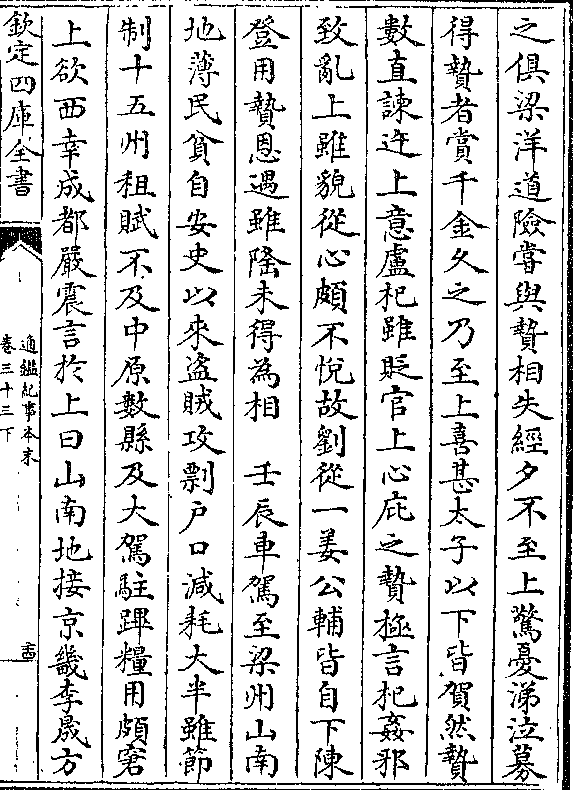 之俱梁洋道險嘗與贄相失經夕不至上驚憂涕泣募
得贄者賞千金久之乃至上喜甚太子以下皆賀然贄
數直諫迕上意盧杞雖貶官上心庇之贄極言杞姦邪
致亂上雖貌從心頗不悅故劉從一姜公輔皆自下陳
登用贄恩遇雖隆未得為相　壬辰車駕至梁州山南
地薄民貧自安史以來盜賊攻剽户口減耗大半雖節
制十五州租賦不及中原數縣及大駕駐蹕糧用頗窘
上欲西幸成都嚴震言於上曰山南地接京畿李晟方
欽定四庫全書
通鑑紀事本末
卷三十三下